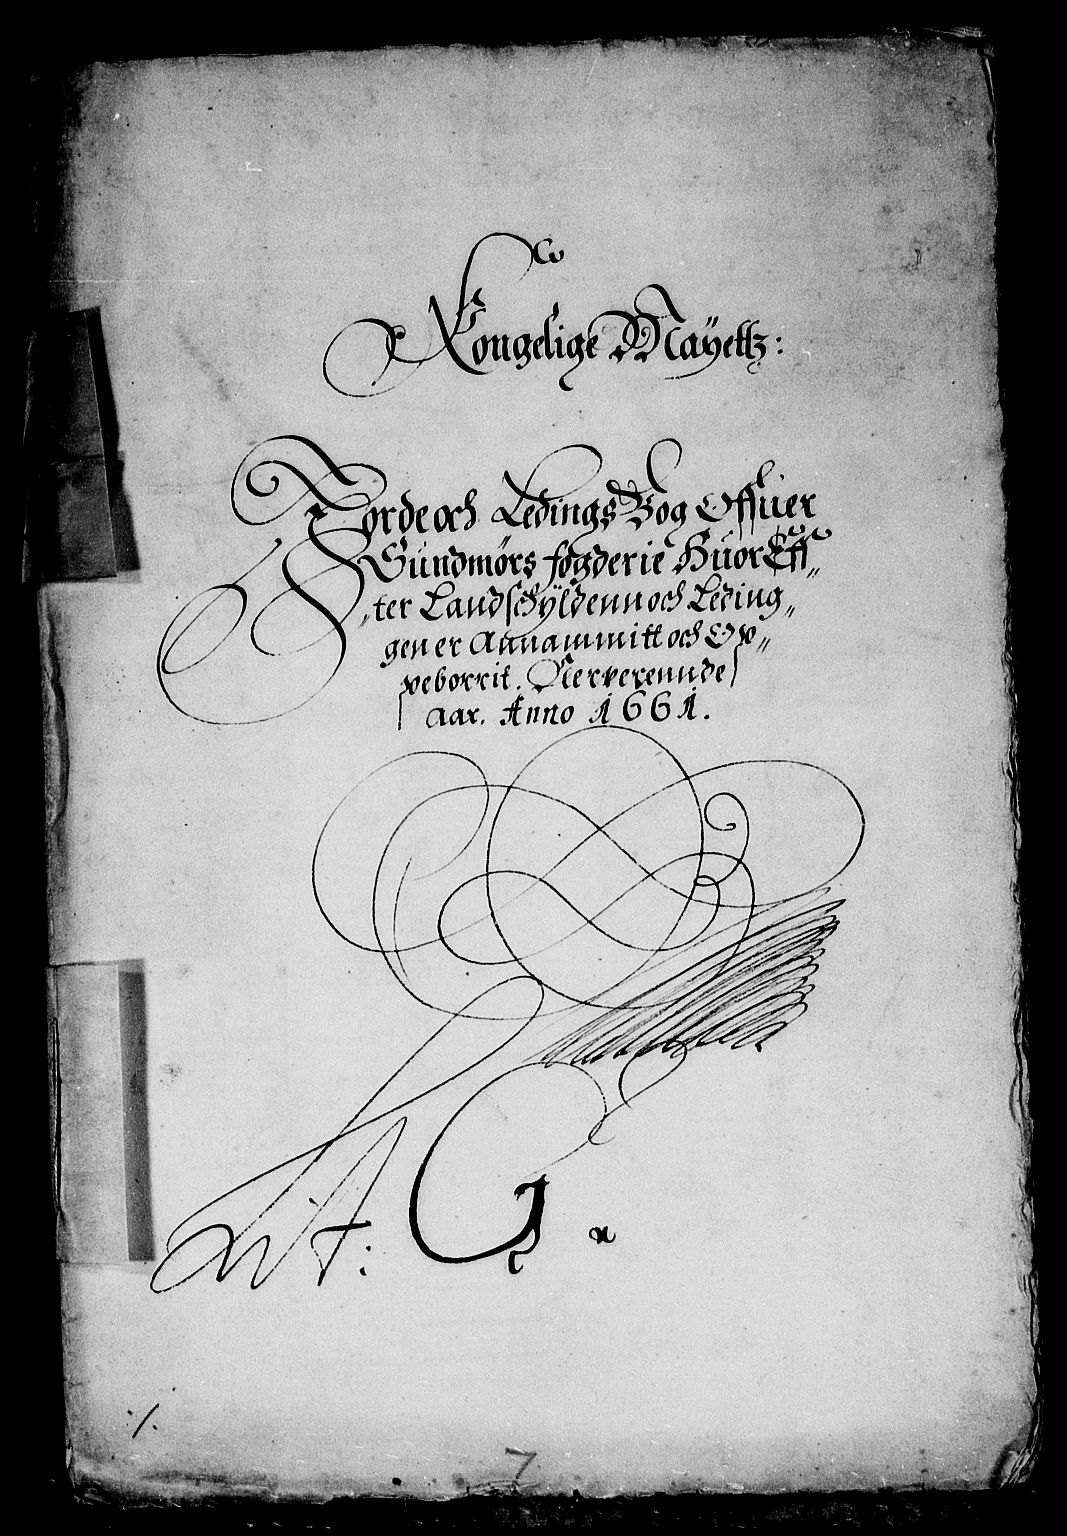 Kongelige Mayettz:
Jorde och Ledings Bog Offuer
Sundmørs fogderie Huor Eff„
„ter Landschÿldenn och Leding„
gen er Annammitt och Op„
peborrit. Nerverennde
Aar. Anno 1661.
Lit: G
./.
7